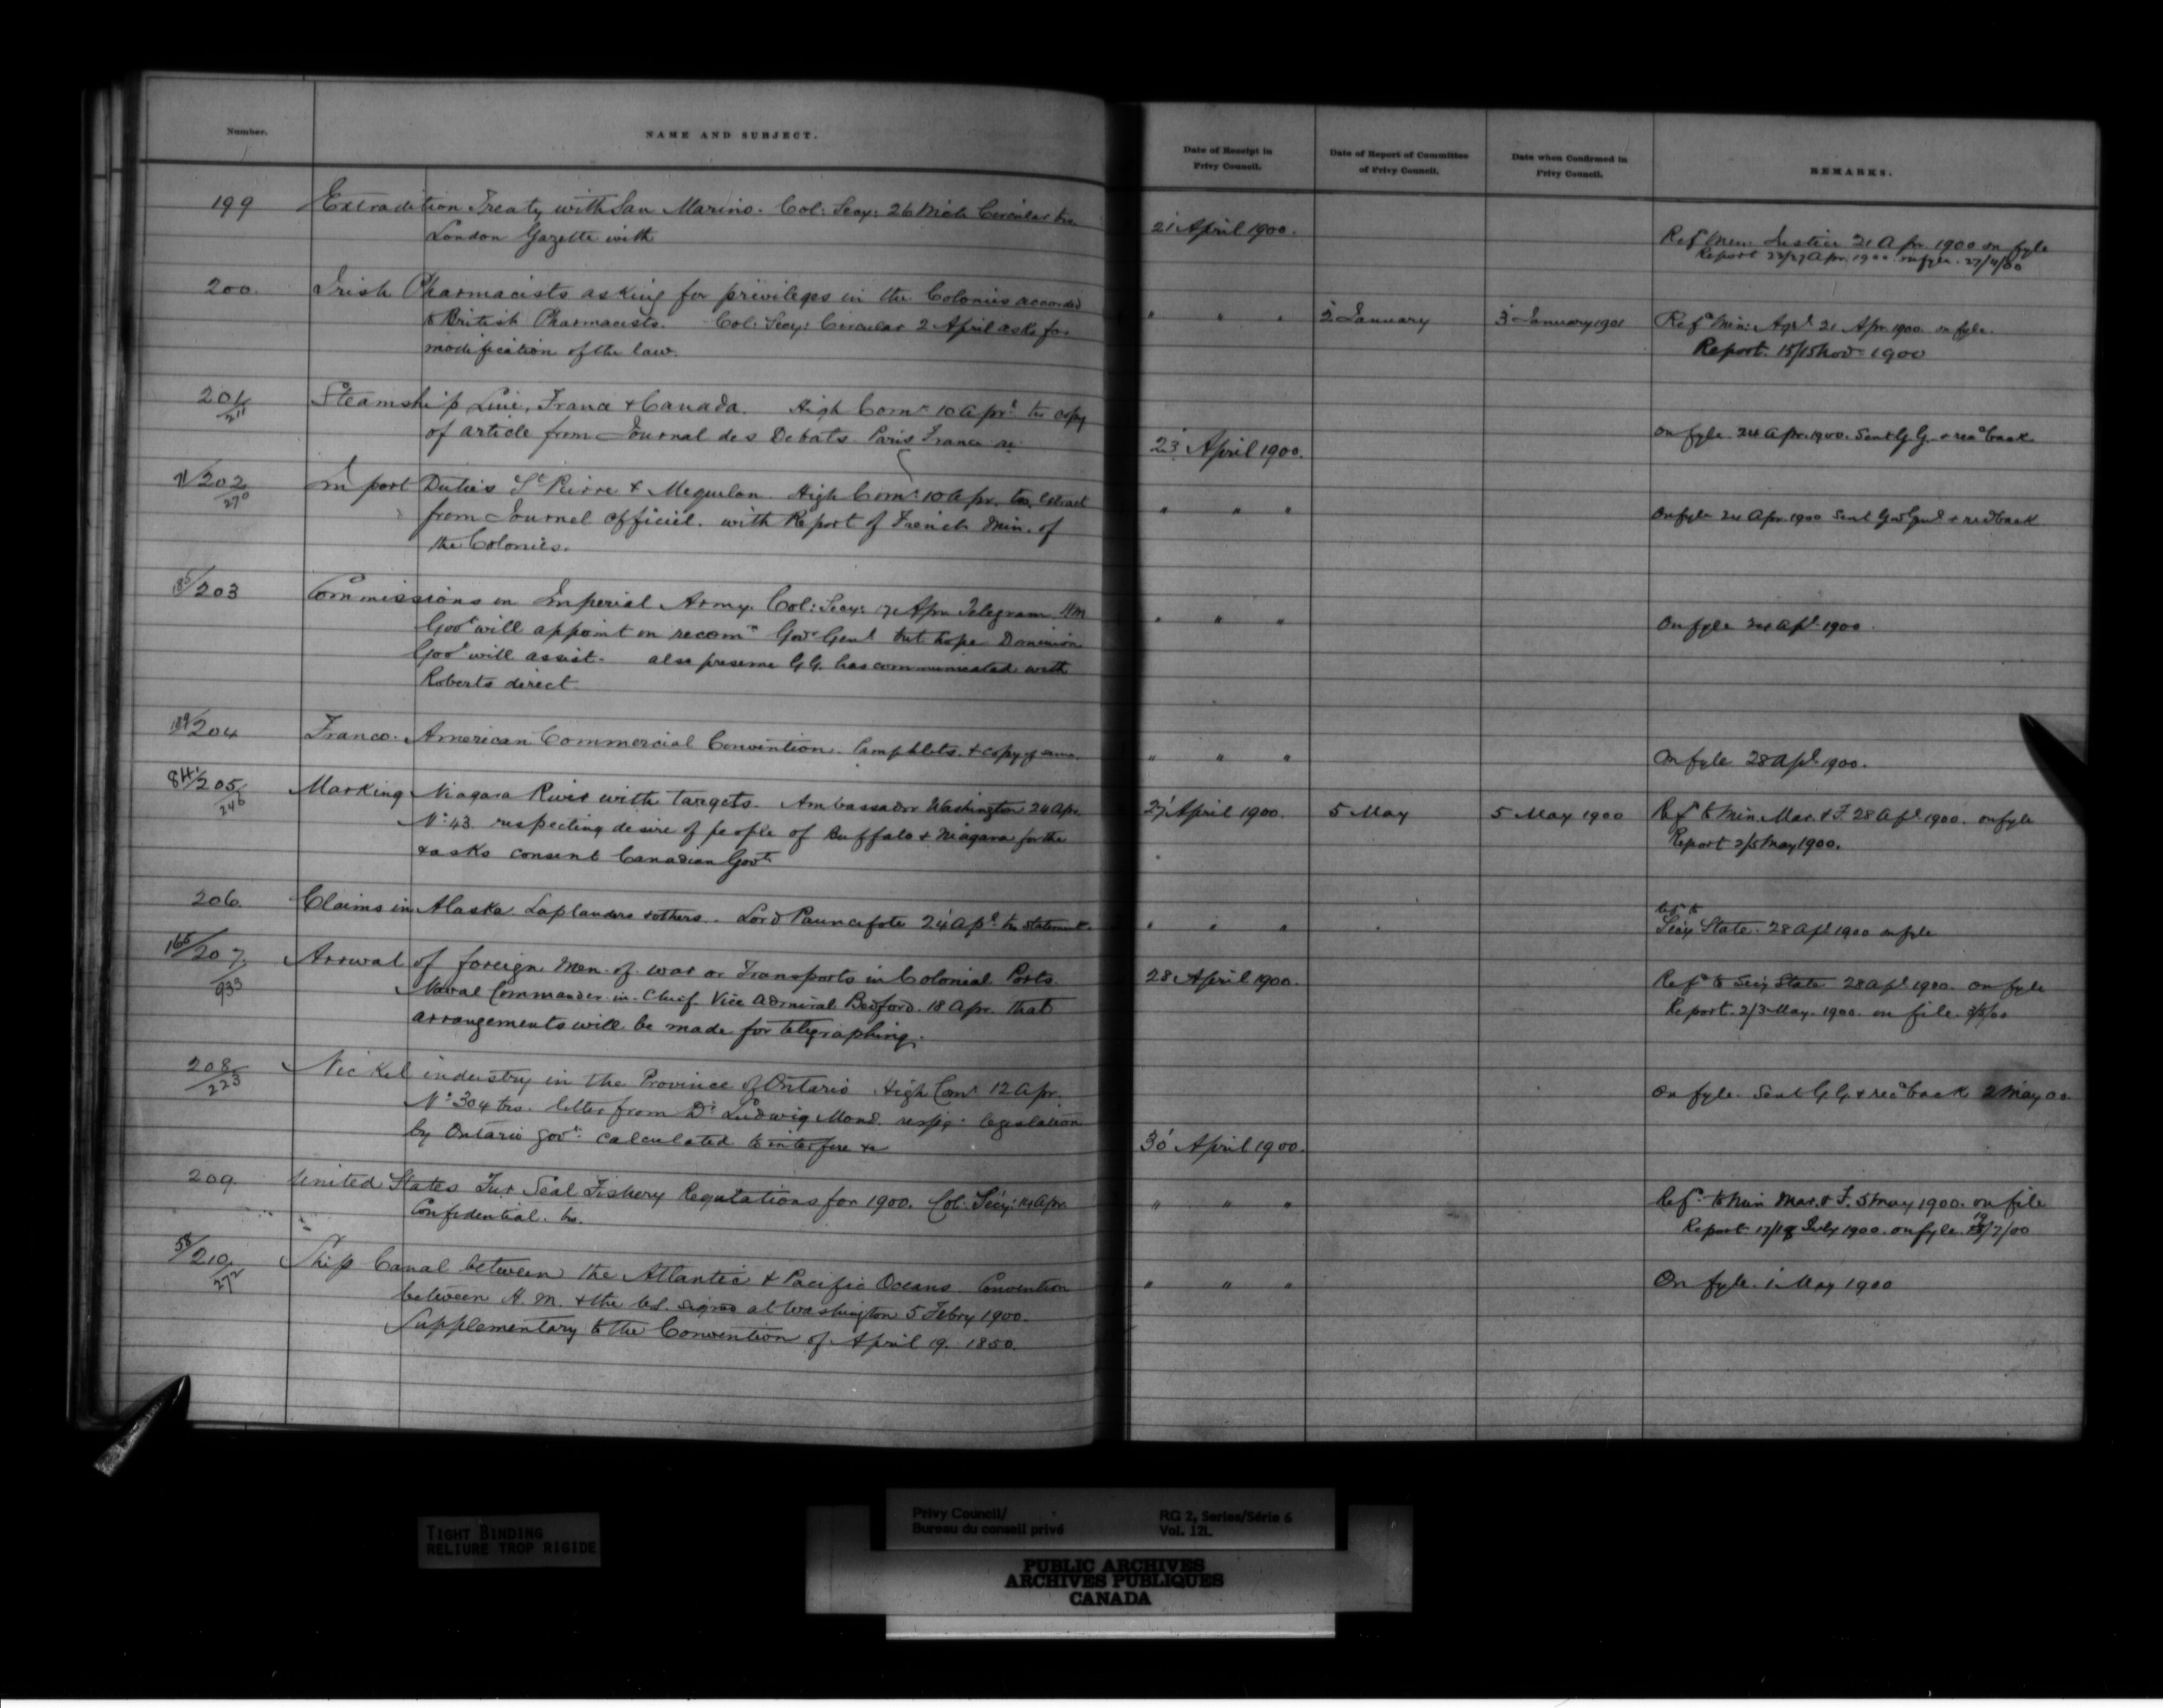 Number.
NAME AND SUBJECT.
Date of Receipt in
Privy Council.
Date of Report of Committee
of Privy Council.
Date when Confirmed in
Privy Council.
REMARKS.
199
Extradition Treaty with San Marino. Col: Secy: 26 Mch Circular trs
London Gazette with
21 April 1900.
Refd Min: Justice 21 Apr. 1900 on fyle
Report 23/27 Apr. 1900. on fyle. 27/4/00
200.
Irish Pharmacists asking for privileges in the Colonies accorded
to British Pharmacists. Col: Secy: Circular 2 April asks for
modification of the law.
" " "
2 January
3 January 1901
Refd Min: Agrl 21 Apr. 1900. on fyle.
Report. 15/15 Nov. 1900
201/211
Steamship Line, France & Canada. High Comr 10 Aprl trs copy
of article from Journal des Debats. Paris France re
23 April 1900.
On fyle. 24 Apr. 1900. Sent G.G. & recd back
71/202/270
Import Duties St Pierre & Mequelon. High Comr 10 Apr. trs. extract
from Journel officiel. with Report of French Min. of
the Colonies.
" " "
On fyle 24 Apr. 1900 Sent Gov Genl & recd back
85/203
Commissions in Imperial Army. Col: Secy: 17 Apr. Telegram. H.M.
Govt will appoint on recomn Govr Genl but hope Dominion
Govt will assist. also presume G.G. has communicated with
Roberts direct.
" " "
On fyle 24 Apl. 1900.
189/204
Franco-American Commercial Convention. Pamphlets. & copy of same.
" " "
On fyle 28 Apl. 1900.
841/205/246
Marking Niagara River with targets. Ambassador Washington 24 Apr.
No 43. respecting desire of people of Buffalo & Niagara for the
& asks consent Canadian Govt
27 April 1900.
5 May
5 May 1900
Refd to Min. Mar. & F. 28 Apl. 1900. on fyle
Report 2/5 May 1900.
206.
Claims in Alaska. Laplanders & others. Lord Pauncefote 24 Apl. trs statement.
" " "
Ref to
Secy State. 28 Apl 1900 on fyle
165/207/933
Arrival of foreign Men-of-war or Transports in Colonial Ports.
Naval Commander-in-Chief Vice Admiral Bedford. 18 Apr. that
arrangements will be made for telegraphing.
28 April 1900.
Refd to Secy State 28 Apl 1900. on fyle
Report. 2/3 May. 1900. on file. 3/5/00
208/223
Nickel industry in the Province of Ontario High Comr 12 Apr.
No 304 trs. letter from Dr Ludwig Mond. respg. legislation
by Ontario Govt. calculated to interfere &c
30 April 1900.
On fyle. Sent G.G. & recd back 2 May 00
209.
United States Fur Seal Fishery Regulations for 1900. Col. Secy: 14 Apr.
Confidential. trs.
" " "
Refd. to Min Mar. & F. 5 May 1900. on file
Report 17/18 July 1900. on fyle. 19/7/00
58/210/272
Ship Canal between the Atlantic & Pacific Oceans. Convention
between H.M. & the U.S. signed at Washington 5 Febry 1900.
Supplementary to the Convention of April 19. 1850.
" " "
On fyle. 1 May 1900
TIGHT BINDING
RELIURE TROP RIGIDE
Privy Council/
Bureau du conseil privé
RG 2, Series/Série 6
Vol. 121.
PUBLIC ARCHIVES
ARCHIVES PUBLIQUES
CANADA